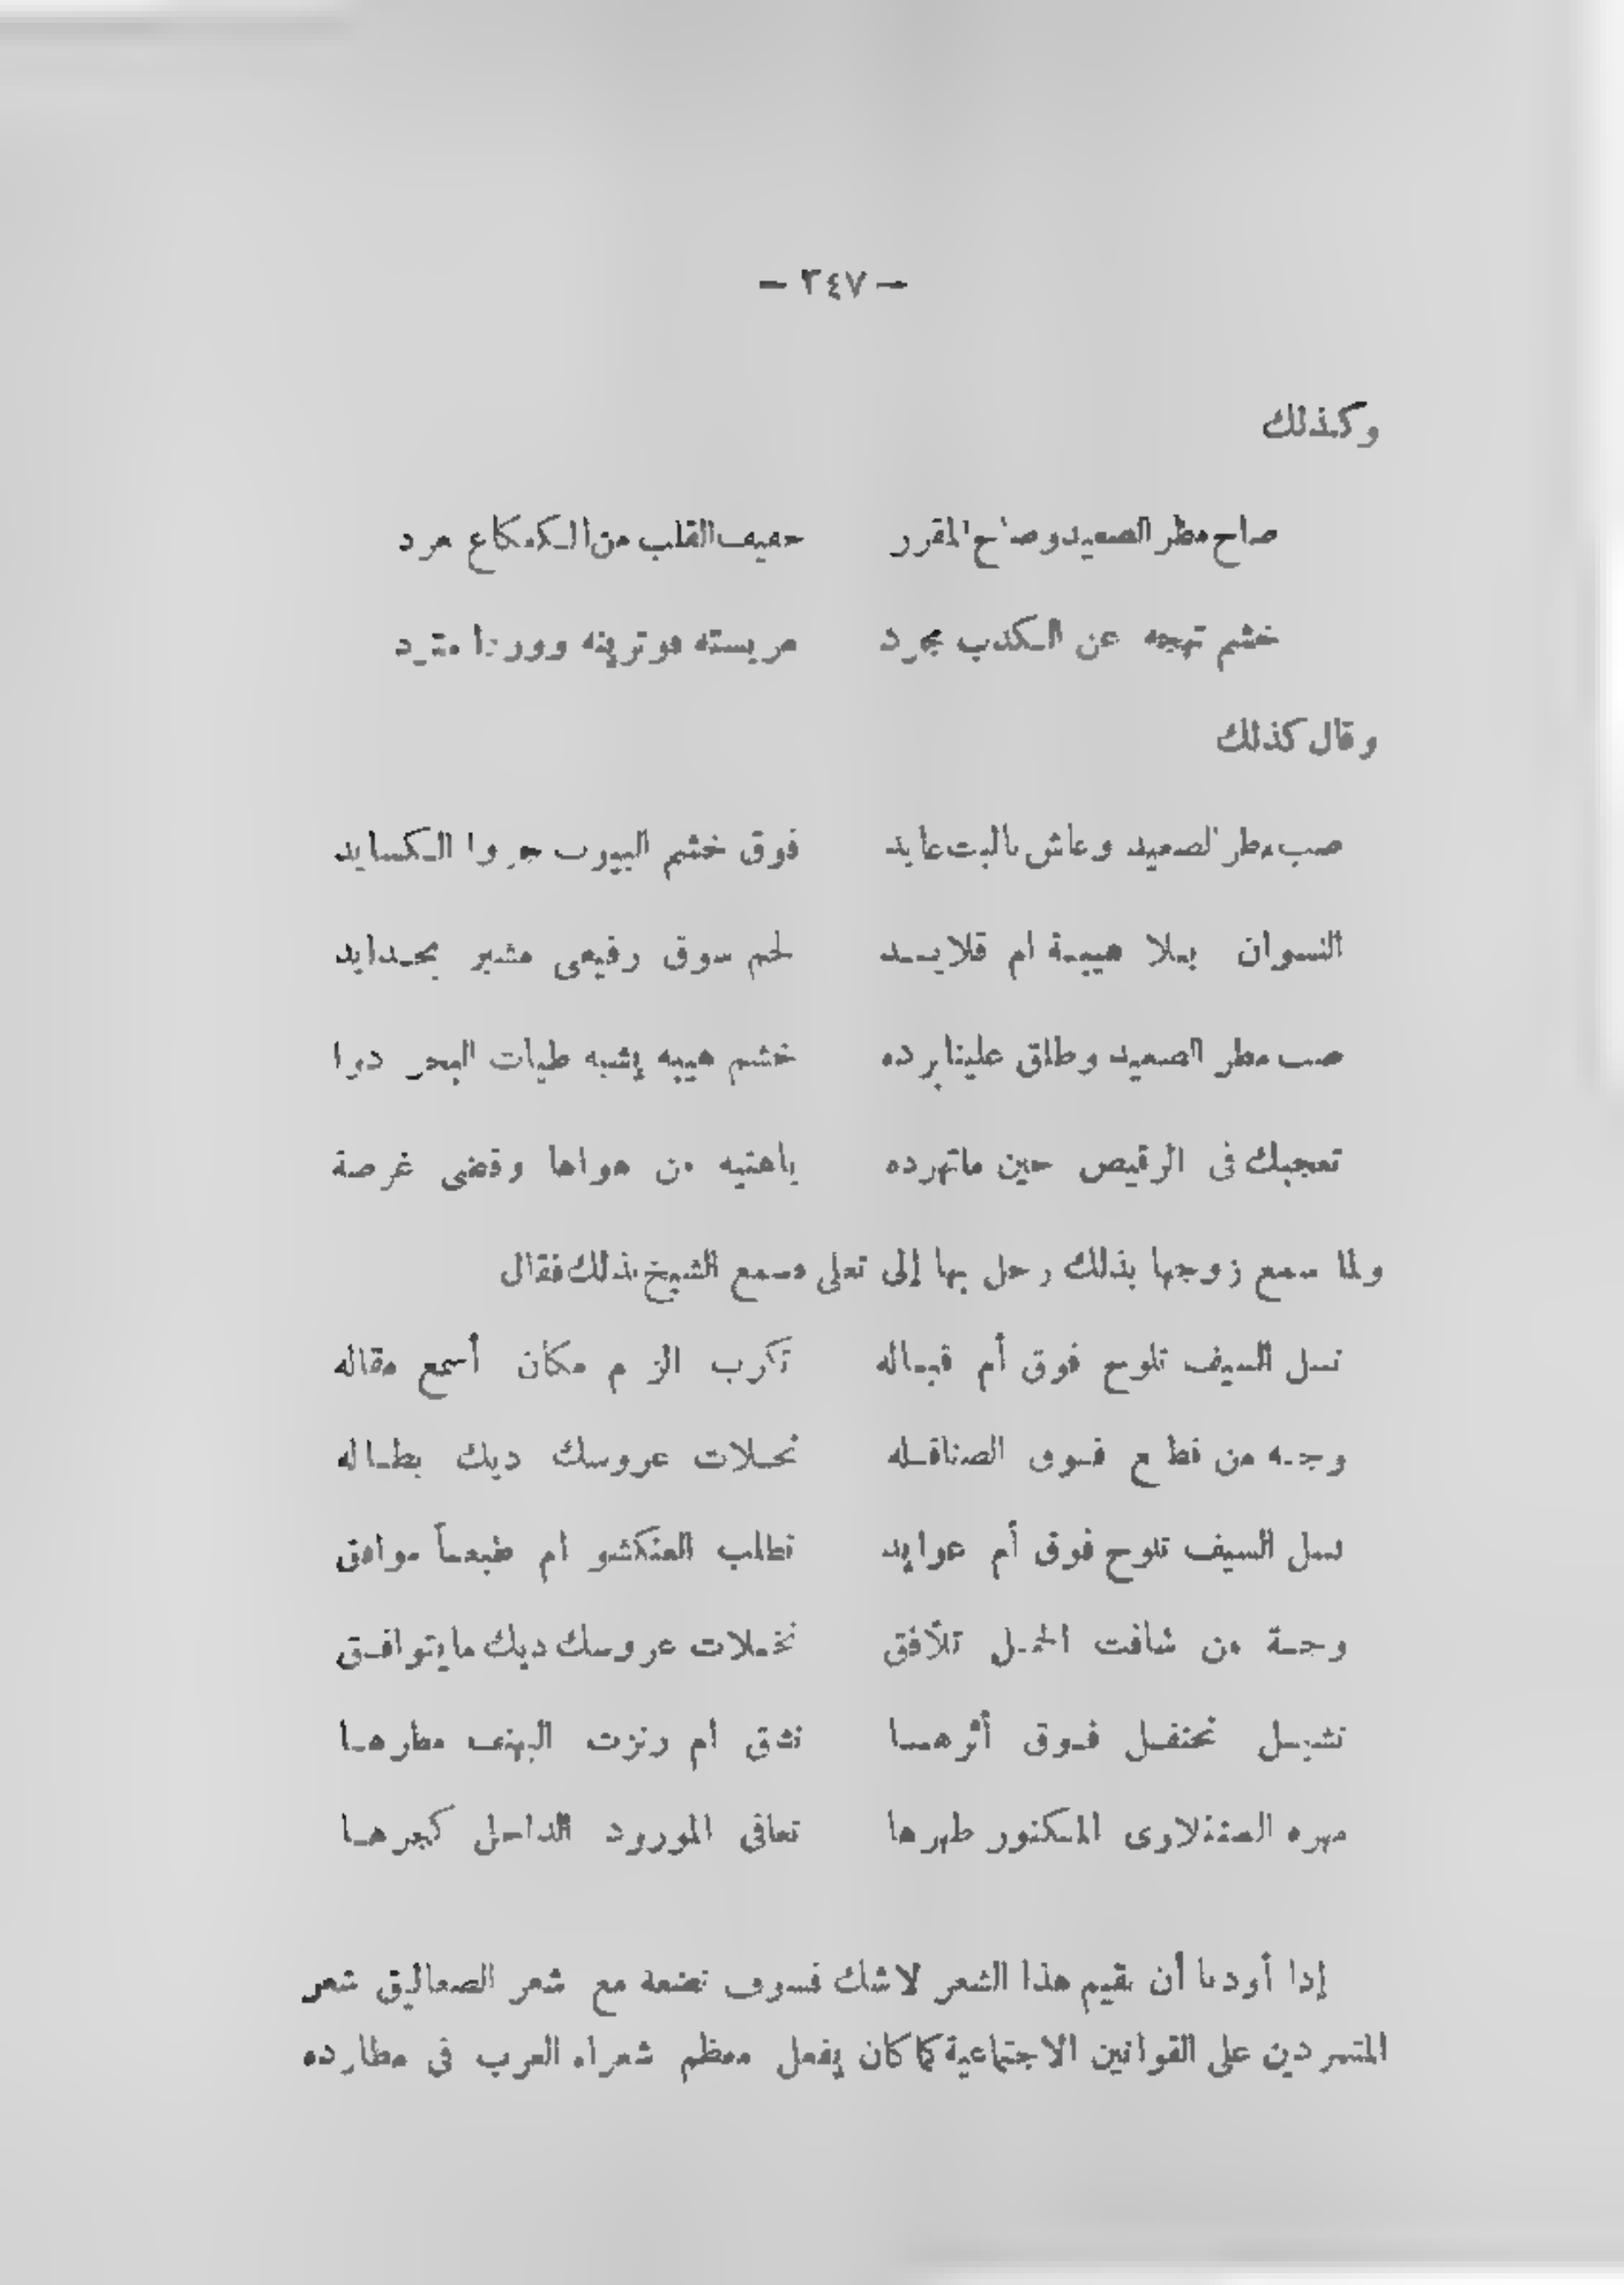 — ٢٤٧ —
وكذلك
صاح مطر الصعيد وصاح المقرر حفيف القلب من الكمكاع مرد
خشم تهجه عن الكدب مجرد مريسته هو ترينه
وقال كذلك
صب مطر الصعيد وعاش بالبت عابد فوق خشم البيوب جروا الكسايد
النسوان بلا هيبة ام قلايد لحم سوق رفيعى مشبر بحدايد
صب مطر الصعيد وطلق علينا برده خشم هيبه إشبه طيات البحر دوا
تعجبك فى الرقيص حين ماتهرده ياهنيه من هواها وقضى غرصة
ولما سمع زوجها بذلك رحل بها إلى تعلى وسمع الشيخ بذلك فقال
نسل السيف تلوح فوق أم قباله تكرب مكان أسمع مقاله
وجه من قطع فوق الصناقله نحلات عروسك ديك بطاله
نسل السيف تلوح فوق أم عوايد تطلب العنكشو ام طبعاً موافق
وجة من شافت الخمل تلأفق نخلات عروسك ديك مايتوافق
تشيل نحنفل فوق أثرها نشق ام رنزت الهنف مطرها
مهره العنقلاوى المكنور طهرها تعافى المورود الداخل كجرها
إذا أودنا أن نقيم هذا الشعر لاشك فسوف نضعه مع شعر الصعاليق شعر
المتمردين على القوانين الاجتماعية كما كان يفعل معظم شعراء العرب فى مطارده